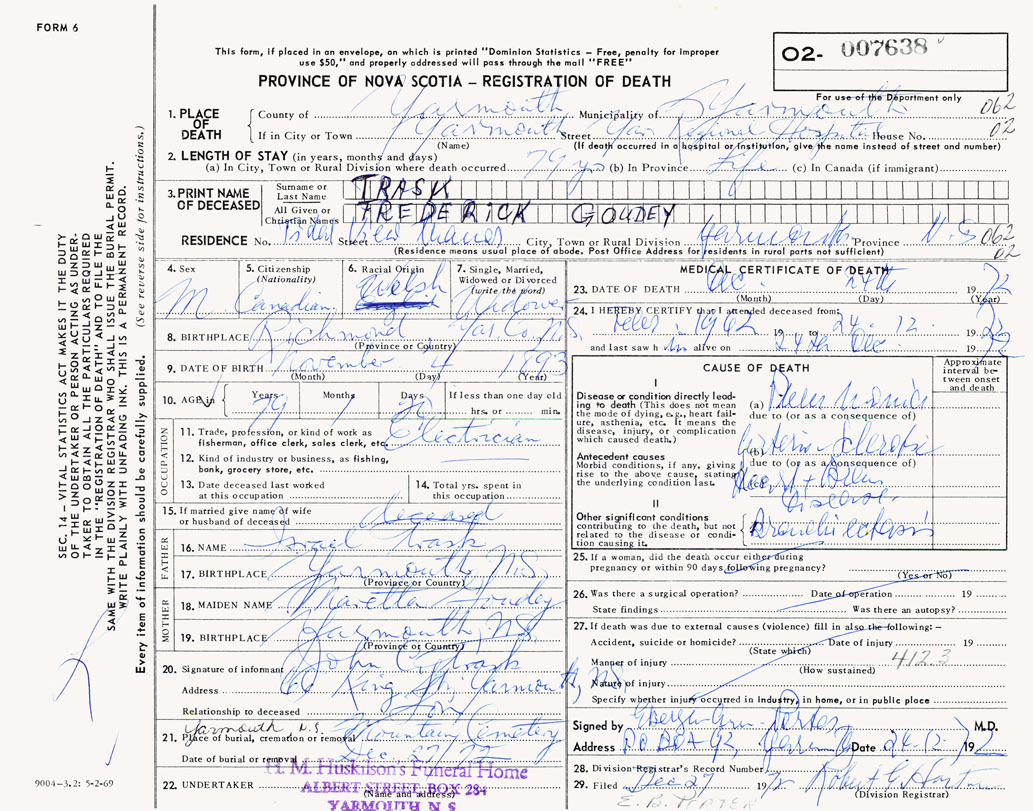 FORM 6
This form, if placed in an envelope, on which is printed "Dominion Statistics – Free, penalty for improper
use $50," and properly addressed will pass through the mail "FREE"
PROVINCE OF NOVA SCOTIA – REGISTRATION OF DEATH
02- 007638
For use of the Department only
1. PLACE OF DEATH
County of Yarmouth Municipality of Yarmouth 062
If in City or Town Yarmouth Street Yar Regional Hospital House No. 02
(Name) (If death occurred in a hospital or institution, give the name instead of street and number)
2. LENGTH OF STAY (in years, months and days)
(a) In City, Town or Rural Division where death occurred 79 yrs (b) In Province Life (c) In Canada (if immigrant)
3. PRINT NAME OF DECEASED
Surname or Last Name TRASK
All Given or Christian Names FREDERICK GOUDEY
RESIDENCE No. Street City, Town or Rural Division Yarmouth Province N.S 062
(Residence means usual place of abode. Post Office Address for residents in rural parts not sufficient) 02
4. Sex M
5. Citizenship (Nationality) Canadian
6. Racial Origin Welsh
7. Single, Married, Widowed or Divorced (write the word) Widower
8. BIRTHPLACE Richmond Yar. Co. N.S.
(Province or Country)
9. DATE OF BIRTH November 4 1893
(Month) (Day) (Year)
10. AGE in Years 79 Months 1 Days If less than one day old
hrs. or min.
OCCUPATION
11. Trade, profession, or kind of work as
fisherman, office clerk, sales clerk, etc. Electrician
12. Kind of industry or business, as fishing,
bank, grocery store, etc.
13. Date deceased last worked
at this occupation
14. Total yrs. spent in
this occupation
15. If married give name of wife
or husband of deceased deceased
FATHER
16. NAME Israel Trask
17. BIRTHPLACE Yarmouth N.S.
(Province or Country)
MOTHER
18. MAIDEN NAME Goudey
19. BIRTHPLACE Yarmouth, N.S.
(Province or Country)
20. Signature of informant John Trask
Address King St, Yarmouth, N.S.
Relationship to deceased Son
Yarmouth N.S.
21. Place of burial, cremation or removal Mountain Cemetery
Date of burial or removal Dec 27/72
22. UNDERTAKER H. M. Huskilson's Funeral Home
ALBERT STREET, BOX 284
(Name and address)
YARMOUTH N S
MEDICAL CERTIFICATE OF DEATH
23. DATE OF DEATH Dec. 24th 1972
(Month) (Day) (Year)
24. I HEREBY CERTIFY that I attended deceased from:
1962 19 to 24. 12. 1972
and last saw him alive on 24th Dec. 1972
CAUSE OF DEATH
Approximate interval between onset and death
I
Disease or condition directly leading to death (This does not mean the mode of dying, e.g., heart failure, asthenia, etc. It means the disease, injury, or complication which caused death.)
(a)
due to (or as a consequence of)
Antecedent causes
Morbid conditions, if any, giving rise to the above cause, stating the underlying condition last.
(b) Arterio-sclerotic
due to (or as a consequence of)
(c) Heart
Disease.
II
Other significant conditions
contributing to the death, but not related to the disease or condition causing it.
Bronchiectasis
25. If a woman, did the death occur either during
pregnancy or within 90 days following pregnancy?
(Yes or No)
26. Was there a surgical operation? Date of operation 19
State findings Was there an autopsy?
27. If death was due to external causes (violence) fill in also the following: –
Accident, suicide or homicide? Date of injury 19
(State which)
Manner of injury 412.3
(How sustained)
Nature of injury
Specify whether injury occurred in industry, in home, or in public place
Signed by M.D.
Address PO BOX 92, Yarmouth Date 24-12- 1972
28. Division Registrar's Record Number
29. Filed Dec 27 1972 Robert G. Horton
(Division Registrar)
E. B. PORTER
SEC. 14 – VITAL STATISTICS ACT MAKES IT THE DUTY
OF THE UNDERTAKER OR PERSON ACTING AS UNDERTAKER
TO OBTAIN ALL THE PARTICULARS REQUIRED
IN THE "REGISTRATION OF DEATH" AND TO FILE THE
SAME WITH THE DIVISION REGISTRAR WHO SHALL ISSUE THE BURIAL PERMIT.
WRITE PLAINLY WITH UNFADING INK. THIS IS A PERMANENT RECORD.
Every item of information should be carefully supplied. (See reverse side for instructions.)
9004-3.2: 5-2-69